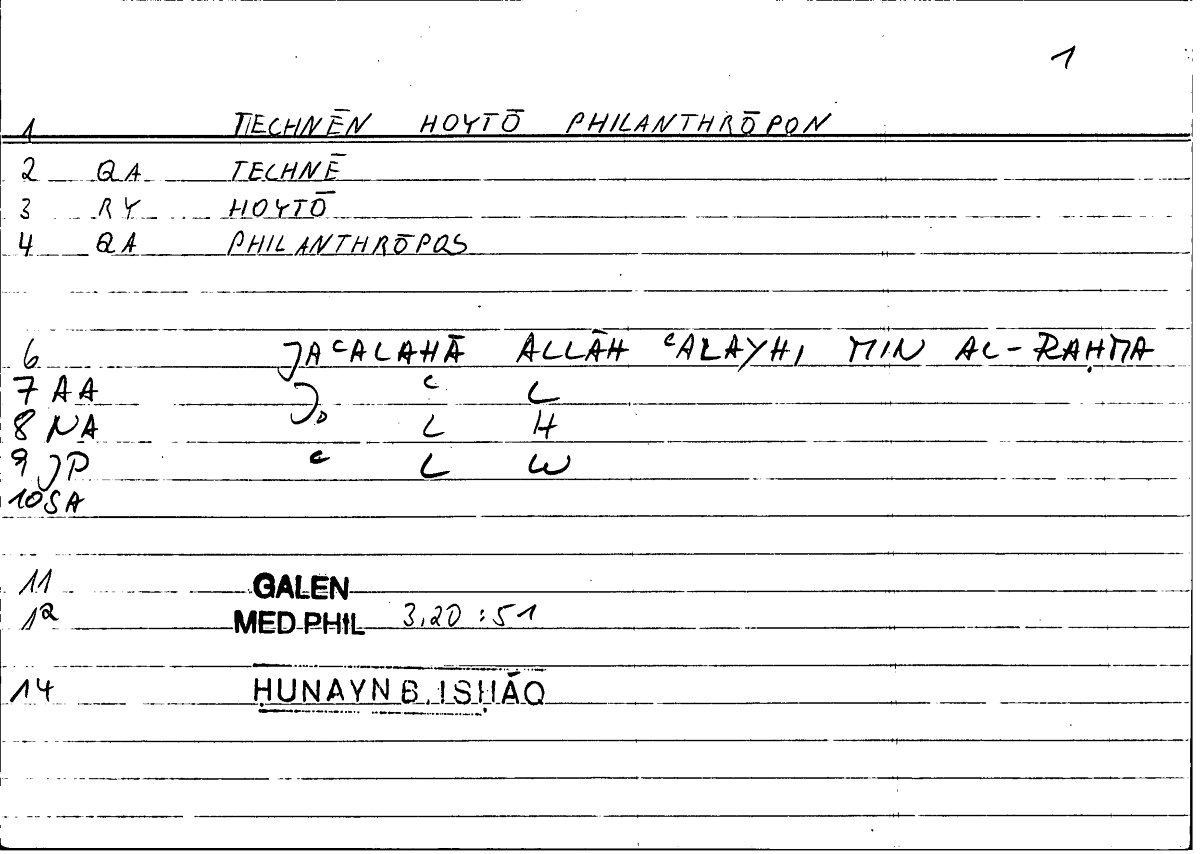 1
1 TECHNĒN HOYTŌ PHILANTHRŌPON
2 QA TECHNĒ
3 RY HOYTŌ
4 QA PHILANTHRŌPOS
6 JAᶜALAHĀ ALLĀH ᶜALAYHI MIN AL-RAḤMA
7 AA J ᶜ L
8 NA J L H
9 JP ᶜ L W
10 SA
11 GALEN
12 MED PHIL 3,20 : 51
14 ḤUNAYN B. ISḤĀQ